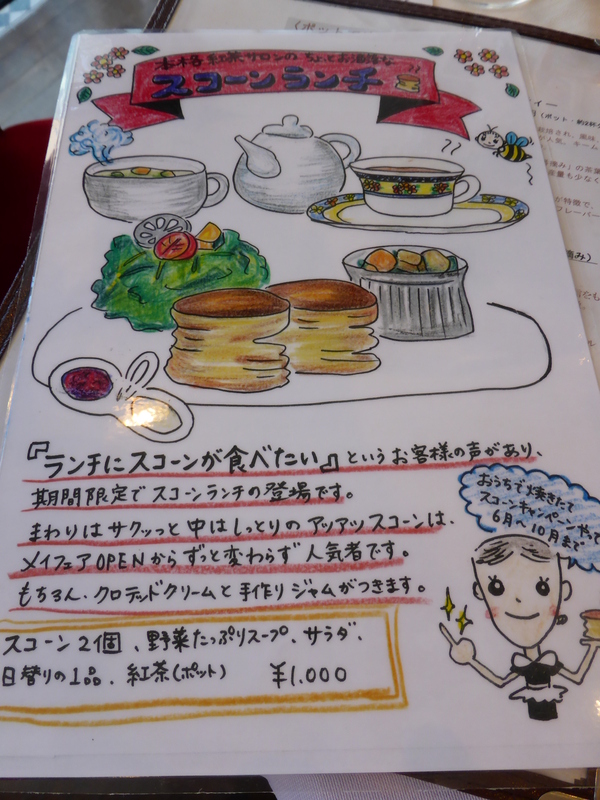 本格紅茶サロンのちょっとお洒落な
スコーンランチ
『ランチにスコーンが食べたい』というお客様の声があり、
期間限定でスコーンランチの登場です。
まわりはサクッっと中はしっとりのアツアツスコーンは、
メイフェアOPENからずと変わらず人気者です。
もちろん、クロテッドクリームと手作りジャムがつきます。
おうちで焼きたて
スコーンキャンペーンやって
6月〜10月まで
スコーン2個、野菜たっぷりスープ、サラダ、
日替りの1品、紅茶(ポット) ¥1,000
(ポット
(ポット・約2杯